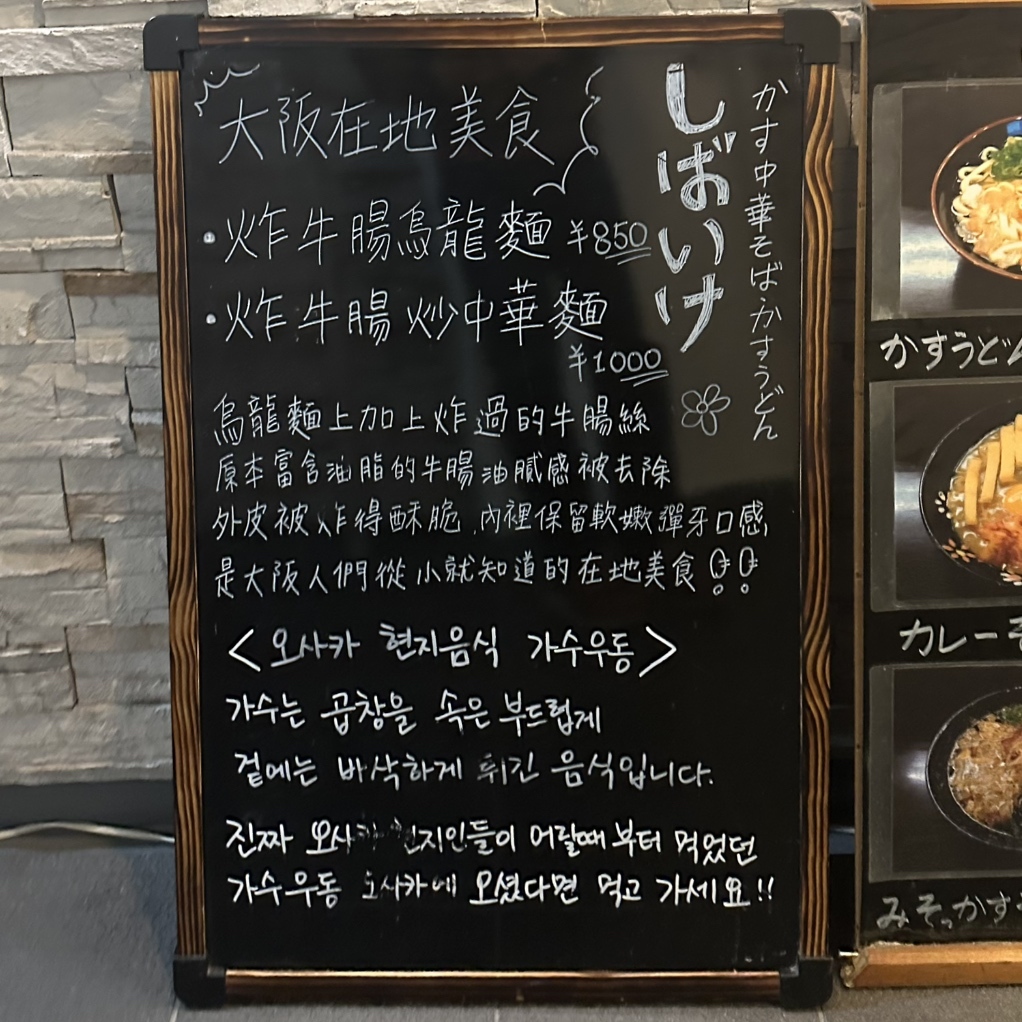 かす中華そば・かすうどん
しばいけ
大阪在地美食
・炸牛腸烏龍麵 ¥850
・炸牛腸炒中華麵
¥1000
烏龍麵上加上炸過的牛腸絲
原本富含油脂的牛腸油膩感被去除
外皮被炸得酥脆,內裡保留軟嫩彈牙口感,
是大阪人們從小就知道的在地美食!!
<오사카 현지음식 가수우동>
가수는 곱창을 속은 부드럽게
겉에는 바삭하게 튀긴 음식입니다.
진짜 오사카 현지인들이 어릴때부터 먹었던
가수우동 오사카에 오셨다면 먹고 가세요!!
かすうどん
カレー
みそかす